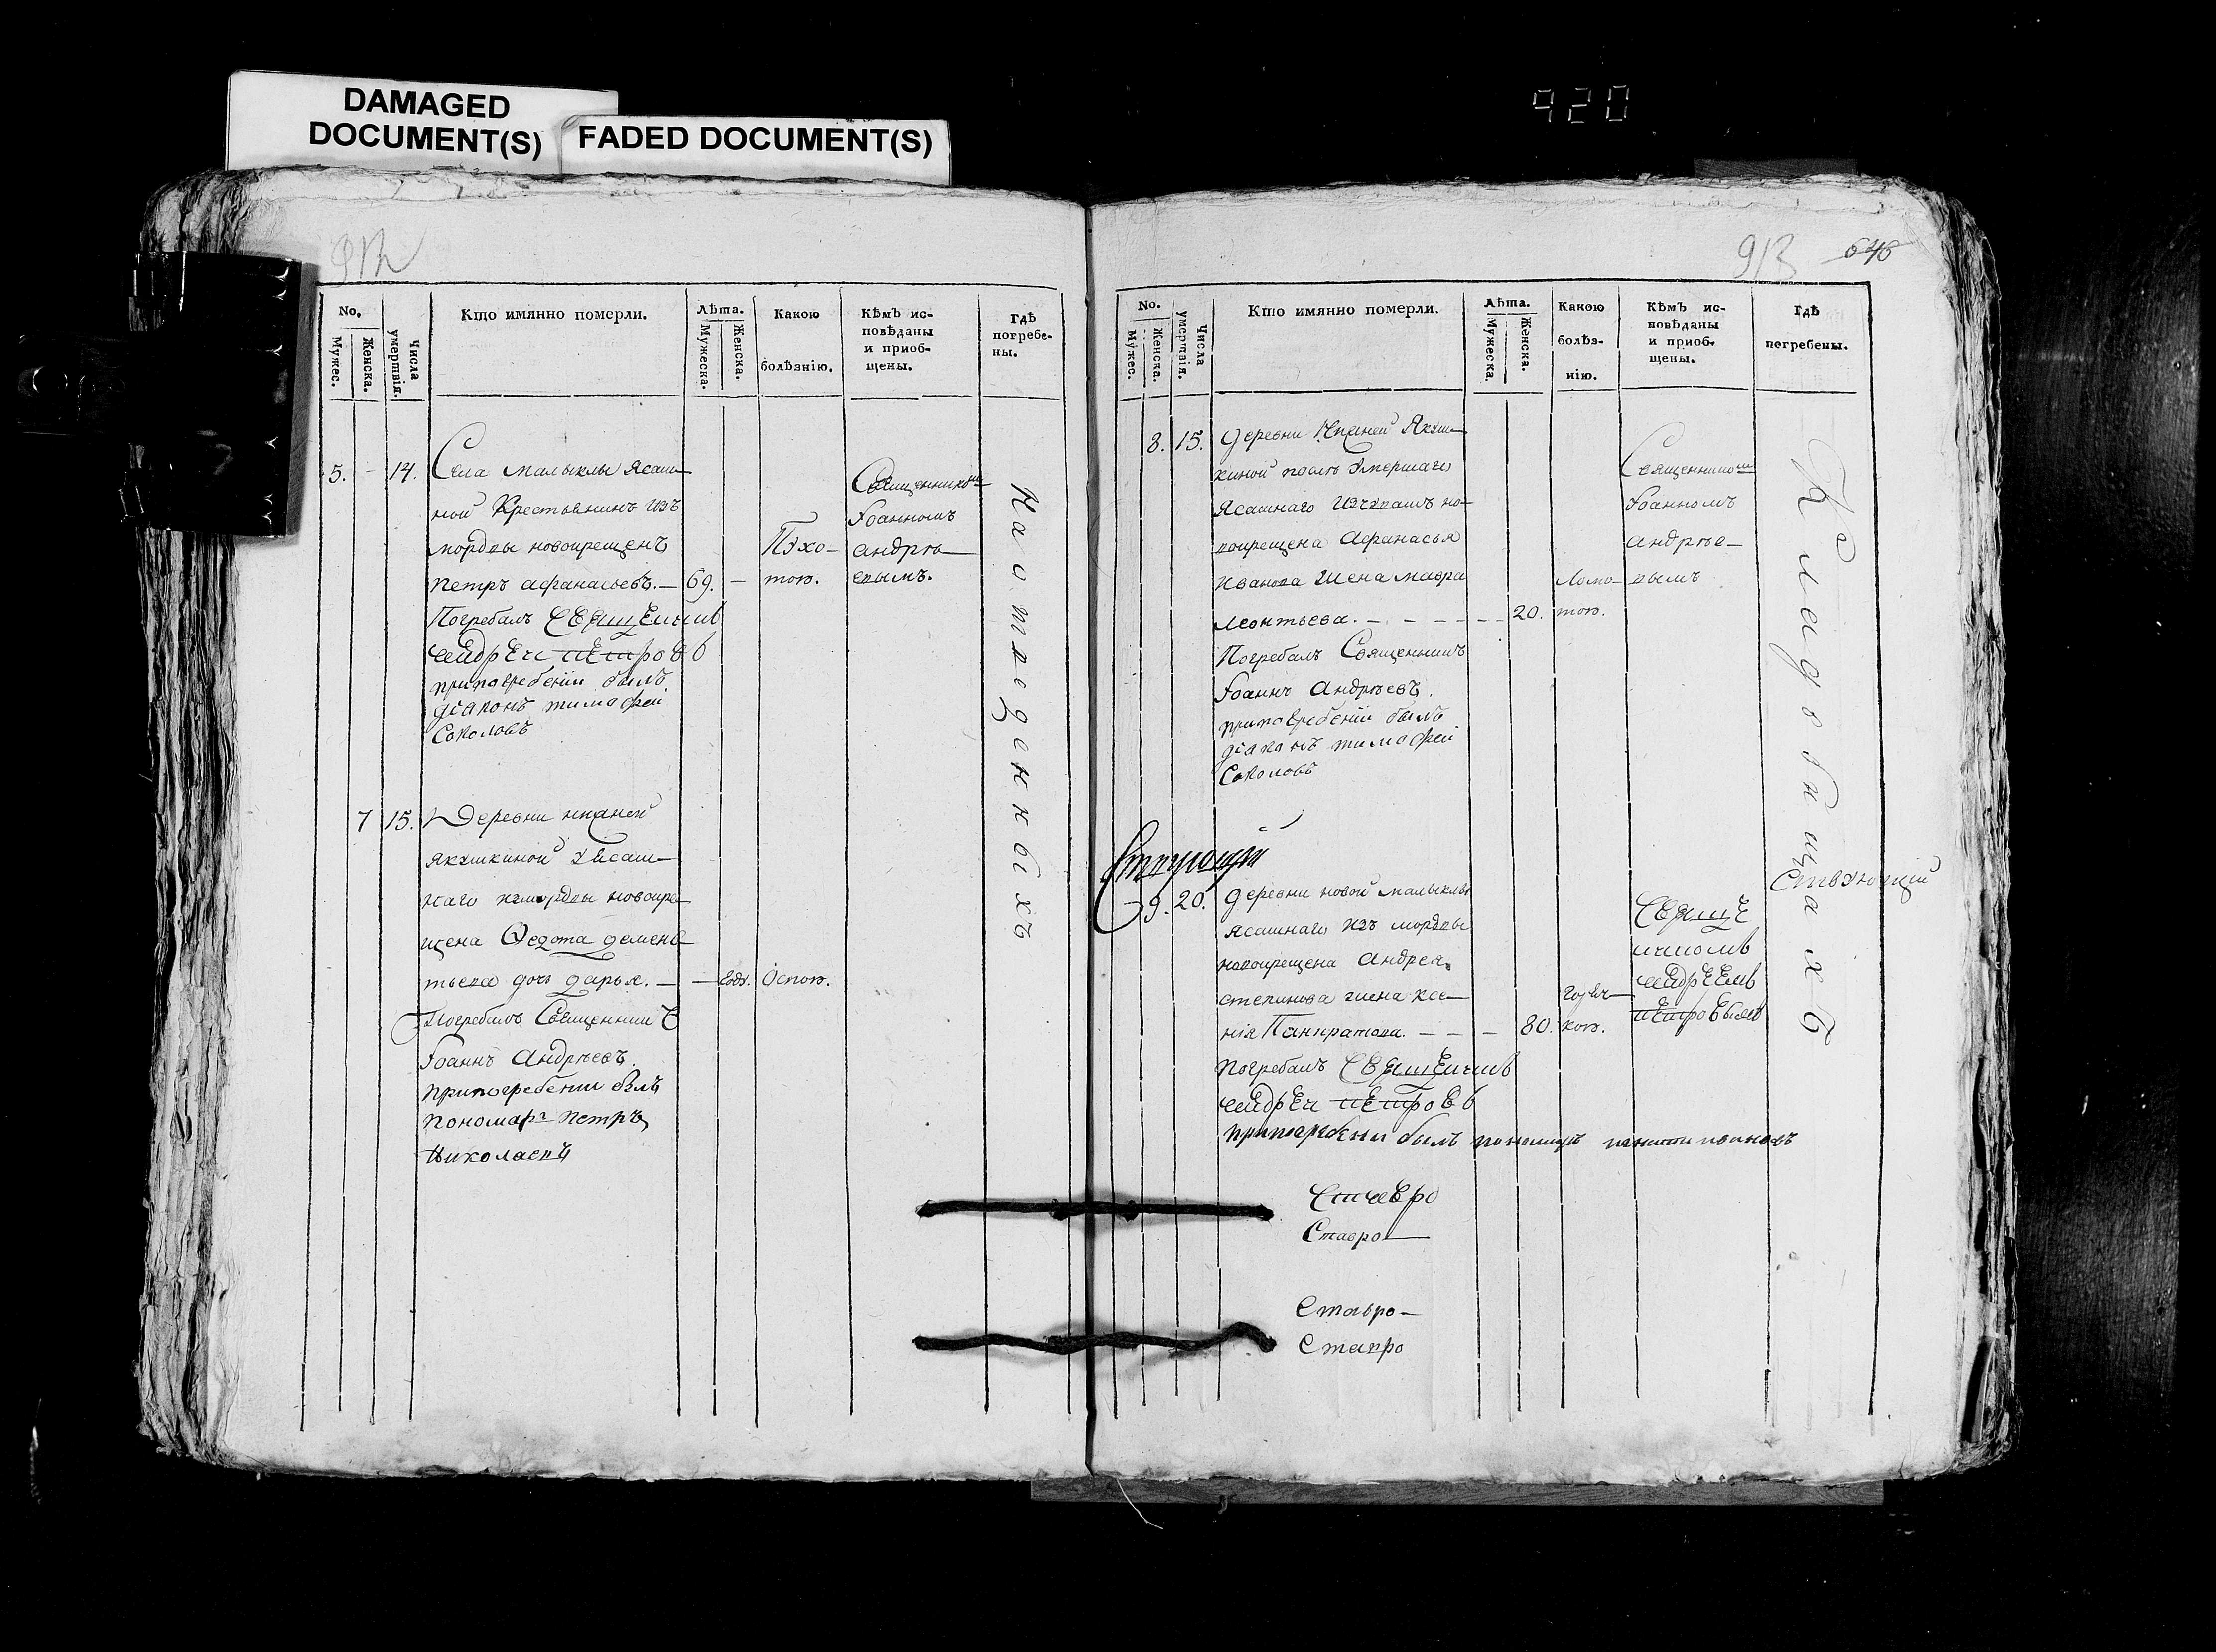 DAMAGED
DOCUMENT(S)
FADED DOCUMENT(S)
920
912
No.
Мужес.
Женска.
Числа умертвія.
Кто имянно померли.
Лѣта.
Мужеска.
Женска.
Какою
болѣзнію.
Кѣмъ ис-
повѣданы
и приоб-
щены.
Гдѣ
погребе-
ны.
5. - 14. Села малыклы ясаш-
ной Крестьянинъ изъ
мордвы новокрещенъ
петръ афанасьевъ. — 69. —
Погребалъ священникъ
андреи петровъ
припогребеніи былъ
діаконъ тимофеи
Соколовъ
Пухо-
тою.
Священникомъ
Іоанномъ
андрѣ-
евымъ.
На отведенныхъ
7 15. Деревни
якушкиной ясаш-
наго измордвы новокре-
щена Федота демен-
тьева дочь дарья. — — году. Оспою.
Погребалъ Священникъ
Іоаннъ Андрѣевъ.
припогребении былъ
пономарь петръ
Николаевъ
913 646
No.
Мужес.
Женска.
Числа умертвія.
Кто имянно померли.
Лѣта.
Мужеска.
Женска.
Какою
болѣз-
нію.
Кѣмъ ис-
повѣданы
и приоб-
щены.
Гдѣ
погребены.
8. 15. деревни Якуш-
киной послѣ умершаго
Ясашнаго но-
вокрещена Афанасья
Иванова жена мавра
леонтьева. — — — — 20.
Погребалъ Священникъ
Іоаннъ Андрѣевъ.
припогребеніи былъ
діаконъ тимофеи
Соколовъ
Ломо-
тою.
Священникомъ
Іоанномъ
андрѣе-
вымъ
Кладбищахъ
Ствующий
9. 20. деревни новой малыклы
ясашнаго изъ мордвы
новокрещена андрея
степанова жена ксе-
нія Панкратова. — — — 80.
погребалъ священникъ
андреи петровъ
припогребении былъ пономарь ивановъ
горяч-
кою.
Свяще
нникомъ
андреемъ
петровымъ
Ствующий
Ставро
Ставро—
Ставро—
Ставро